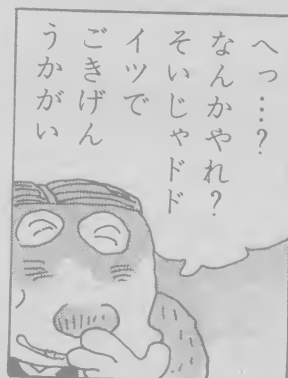 へっ…?
なんかやれ?
そいじゃドド
イツで
ごきげん
うかがい